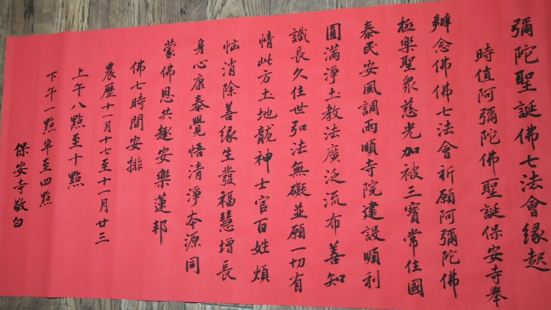 彌陀聖誕佛七法會缘起
時值阿彌陀佛聖誕保安寺舉
辦念佛佛七法會祈願阿彌陀佛
極樂聖衆慈光加被三寶常住國
泰民安風調雨順寺院建設順利
圓滿淨土教法廣泛流布善知
識長久住世弘法無礙並願一切有
情此方土地龍神士官百姓煩
惱消除善緣生發福慧增長
身心康泰覺悟清淨本源同
蒙佛恩共趣安樂蓮邦
佛七時間安排
農歷十一月十七至十一月廿三
上午八點至十點
下午一點半至四點
保安寺敬白